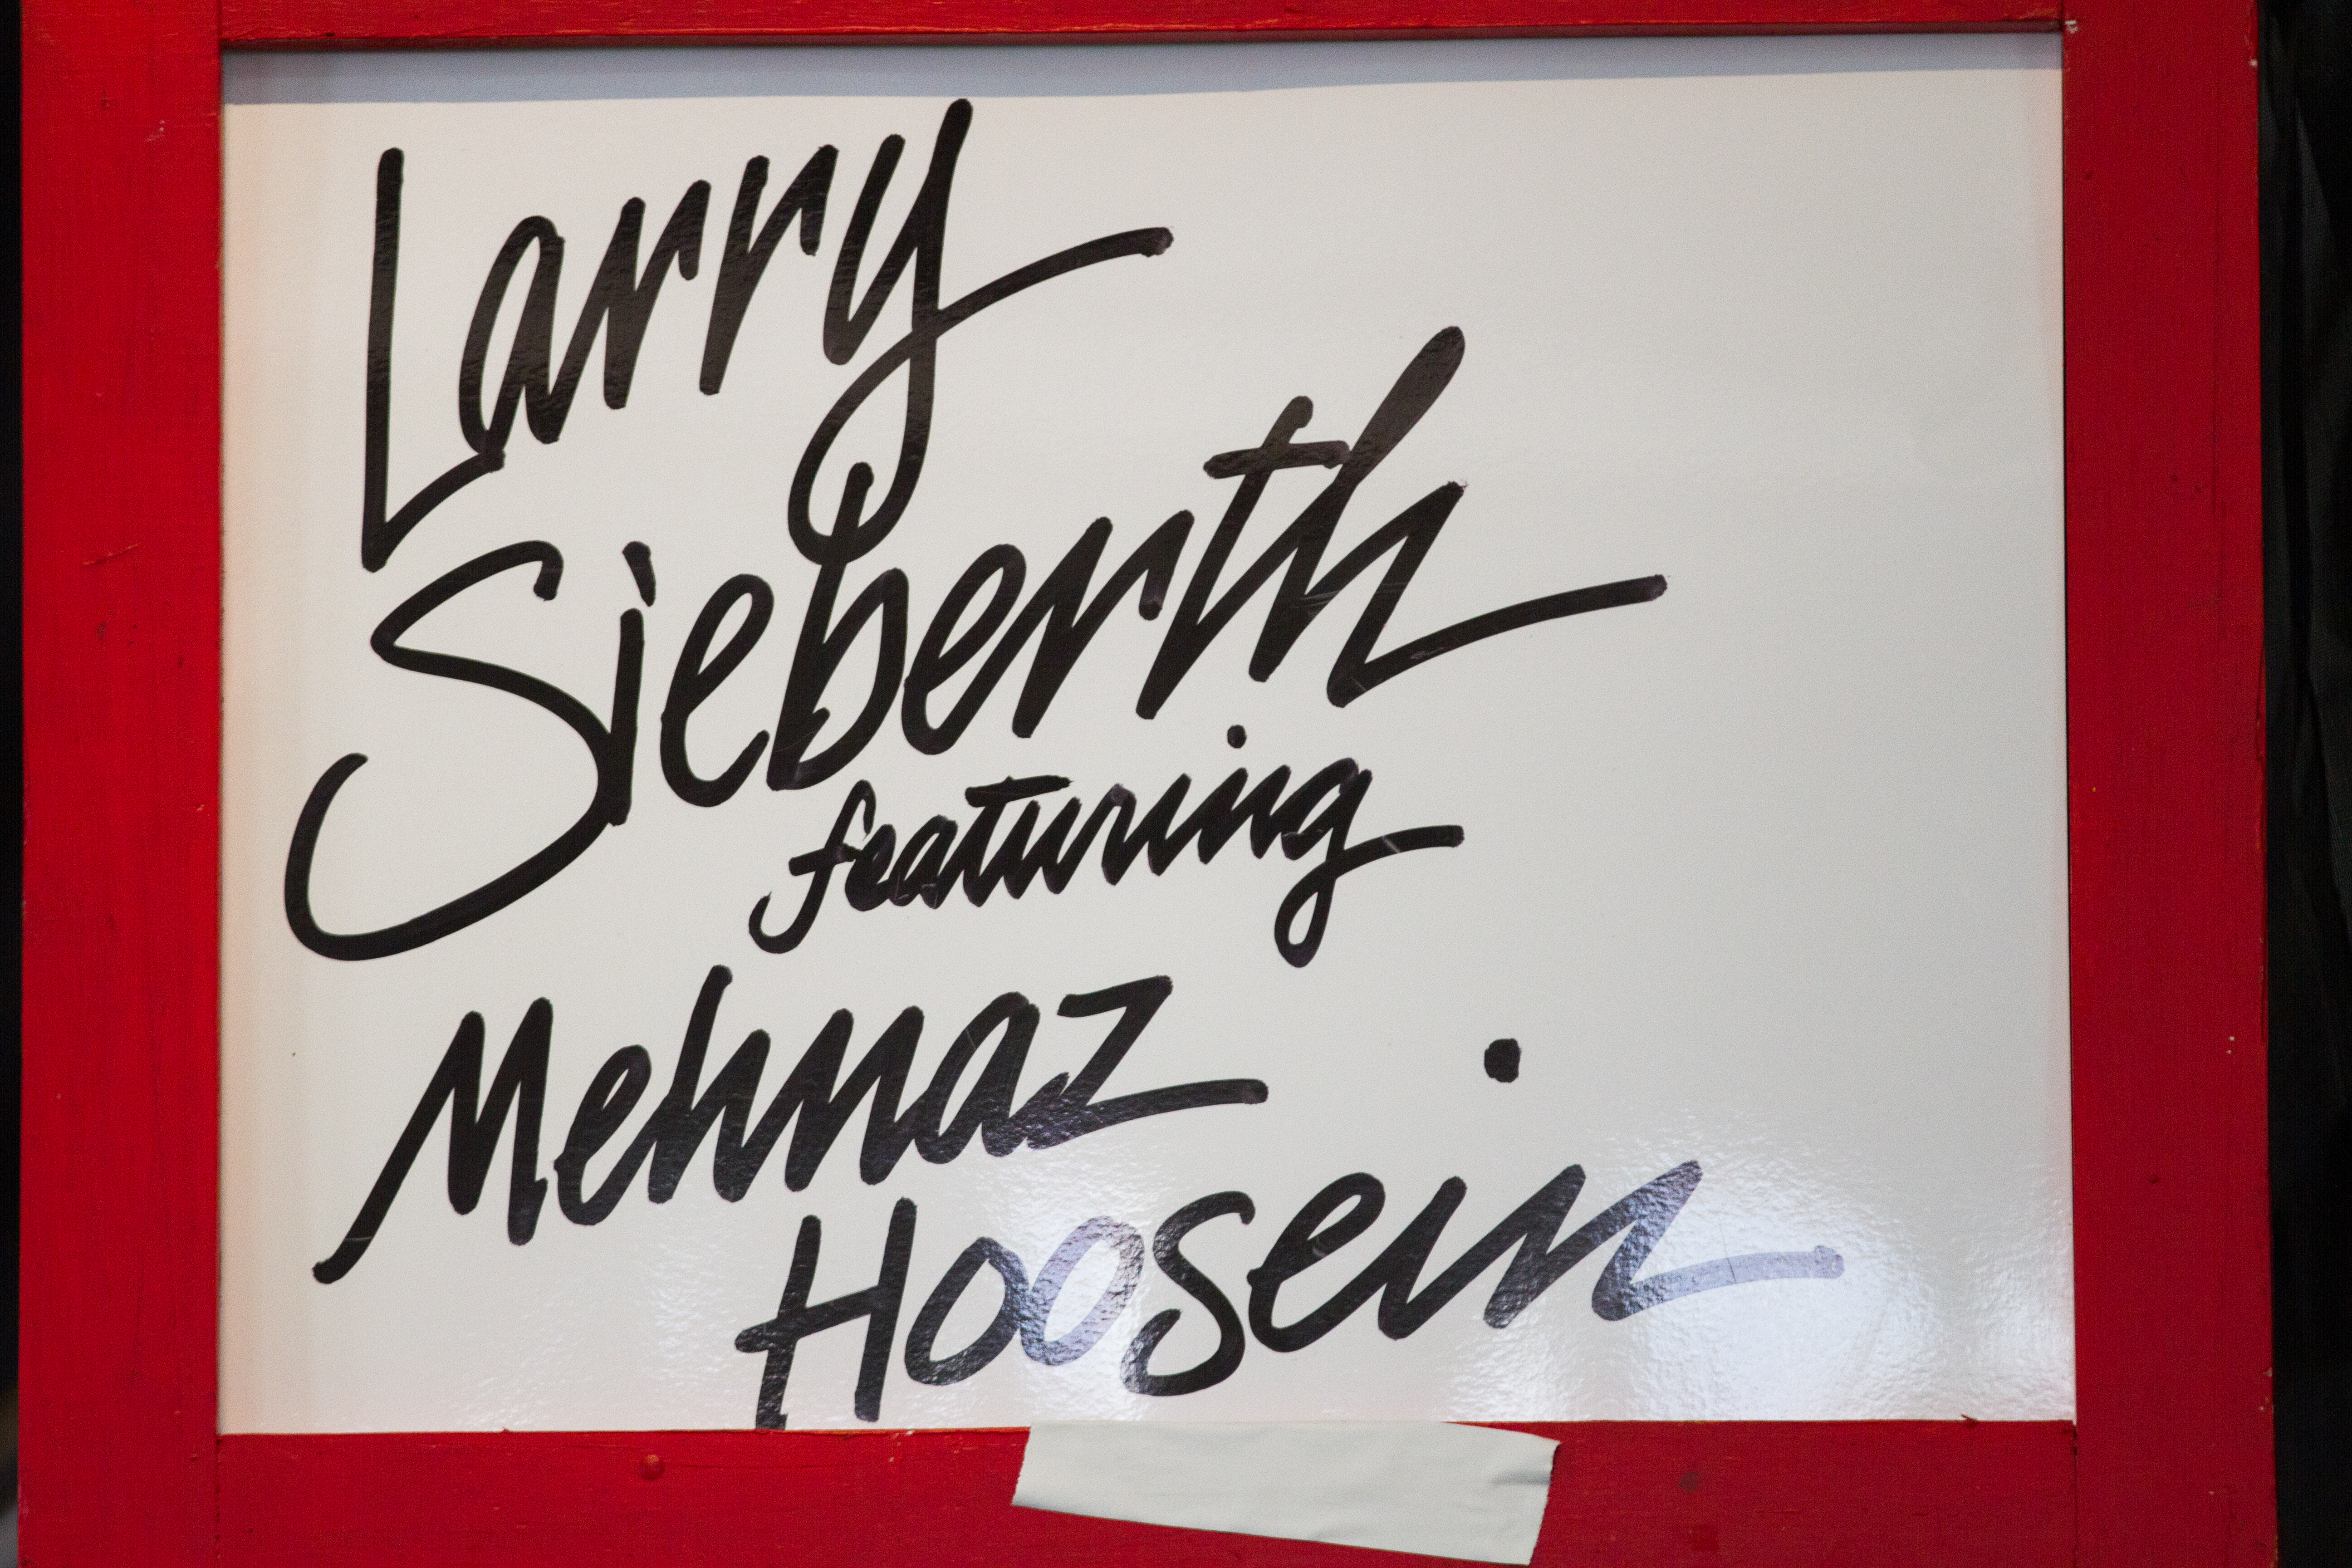 Larry
Sieberth
featuring
Mehnaz
Hoosein